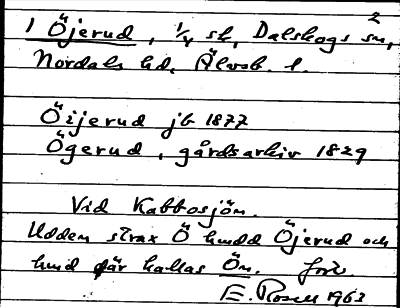 2
1 Öjerud, 1/4 sk, Dalskogs sn,
Nordals hd, Älvsb. l.
Öijerud jb 1877
Ögerud, gårdsarkiv 1829
Vid Kabbosjön.
Udden strax Ö hmdd Öjerud och
hmd där kallas Ön.
E. Rosell 1963